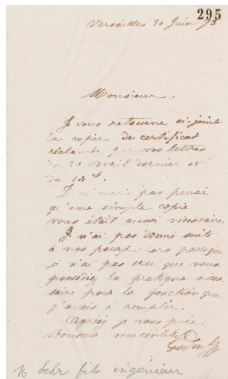 295
Versailles 20 Juin 93
Monsieur,
Je vous retourne ci-joint
la copie de certificat
réclamée par vos lettres
du 20 Avril dernier et
du 14 ct.
Je n'avais pas pensé
qu'une simple copie
vous était aussi nécessaire.
Je n'ai pas donné suite
à nos pourparlers parce que
je n'ai pas cru que vous
la pratique néces
saire pour la fonction que
j'avais à remplir.
Agréez je vous prie
Monsieur mes civilités
fils ingénieur